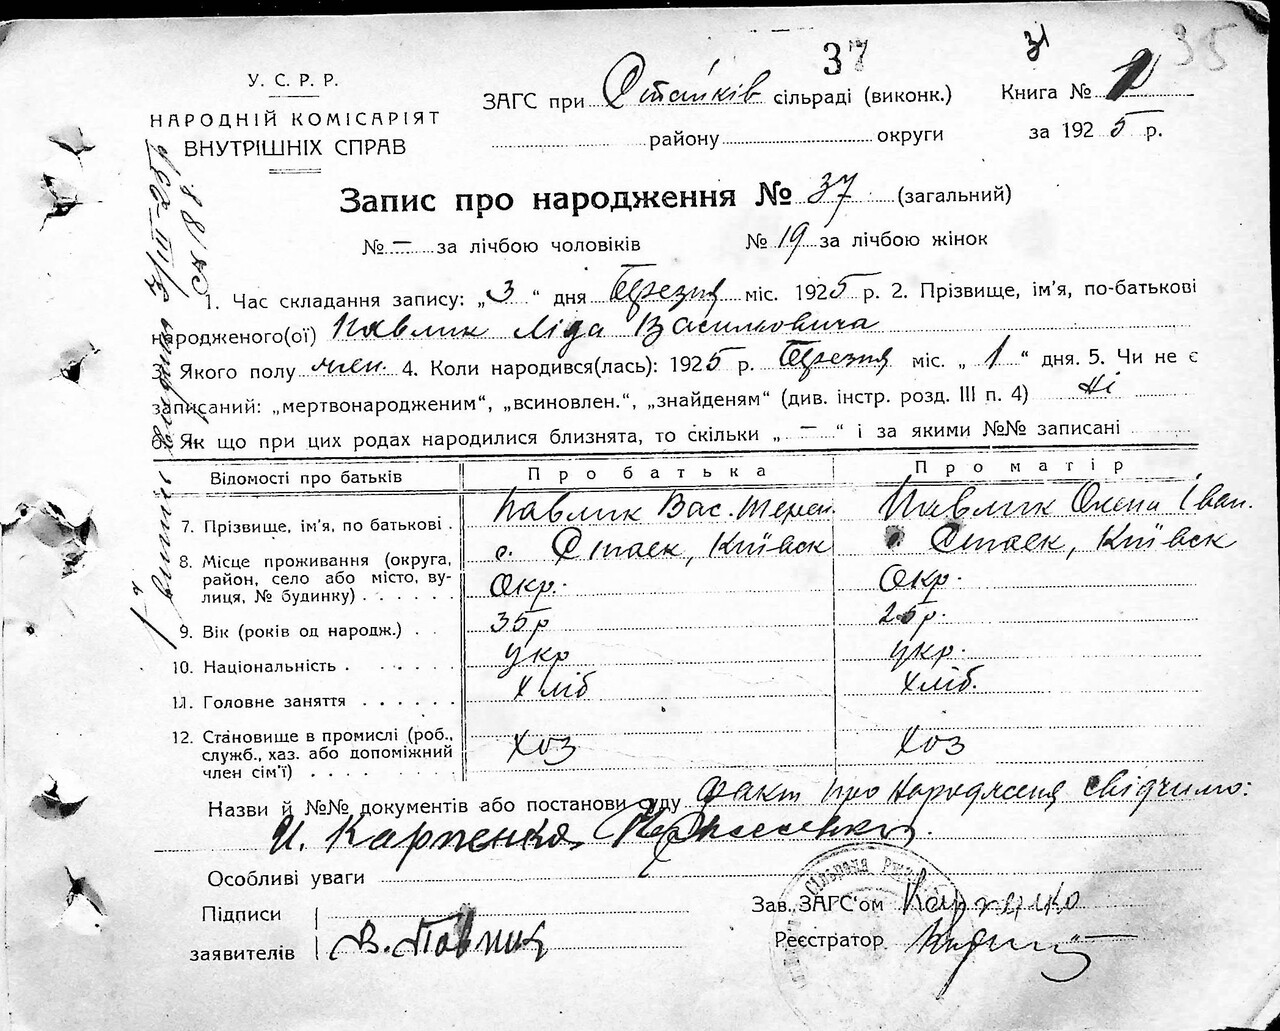 37
31
35
У. С. Р. Р.
НАРОДНІЙ КОМІСАРІЯТ
ВНУТРІШНІХ СПРАВ
ЗАГС при Стайків сільраді (виконк.)
району округи
Книга №
за 1925 р.
Запис про народження № 37 (загальний)
№ — за лічбою чоловіків № 19 за лічбою жінок
1. Час складання запису: „3“ дня Березня міс. 1925 р. 2. Прізвище, ім'я, по-батькові
народженого(ої) Павлик Ліда Василиовича
3. Якого полу жен. 4. Коли народився(лась): 1925 р. Березня міс. „1“ дня. 5. Чи не є
записаний: „мертвонародженим“, „всиновлен.“, „знайденям“ (див. інстр. розд. III п. 4) Ні
6. Як що при цих родах народилися близнята, то скільки „—“ і за якими №№ записані
Відомості про батьків Про батька Про матір
7. Прізвище, ім'я, по батькові . Павлик Вас. Терен. Павлик Оксена Іван.
8. Місце проживання (округа, с. Стаєк, Київск Стаєк, Київск
район, село або місто, ву-
лиця, № будинку) . . . . . Окр. Окр.
9. Вік (років од народж.) . . 35р 25р.
10. Національність . . . . . укр укр.
11. Головне заняття . . . . . . хліб хліб.
12. Становище в промислі (роб.,
служб., хаз. або допоміжний хоз хоз
член сім'ї) . . . . . .
Назви й №№ документів або постанови суду Факт про народження свідчимо:
И. Карпенко
Особливі уваги
Підписи
заявителів В. Павлик
Зав. ЗАГС'ом
Реєстратор